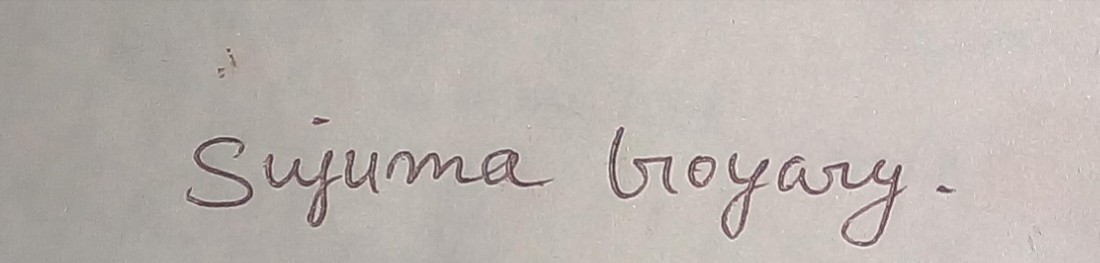 Sujuma broyary.